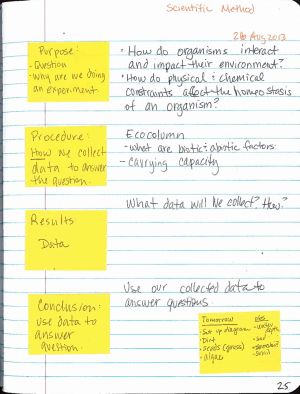 Scientific Method
26 Aug 2013
Purpose:
- Question
- Why are we doing
an experiment
• How do organisms interact
and impact their environment?
• How do physical & chemical
constraints affect the homeostasis
of an organism?
Procedure:
How we collect
data to answer
the question.
Ecocolumn
- what are biotic & abiotic factors
- carrying capacity
Results:
Data
What data will we collect? How?
Conclusion:
use data to
answer
question.
Use our collected data to
answer questions.
Tomorrow
Set up diagram
Dirt
seeds (grass)
algae
- soil
25